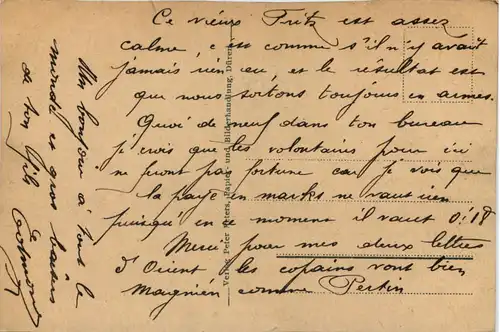 Ce vieux Fritz est assez
calme, c'est comme s'il n'y avait
jamais rien eu, et le résultat est
que nous sortons toujours en armes.
Quoi de neuf dans ton bureau
j'crois que les volontaires pour ici
ne feront pas fortune car je vois que
la paye en marks ne vaut rien
puisqu'en ce moment il vaut 0.18
Merci pour mes deux lettres
d'Orient les copains vont bien
Magnien comme Pertin
Un bonjour à tout le
monde et gros baisers
de ton fils
Verlag Peter Peters, Papier- und Bilderhandlung, Düren